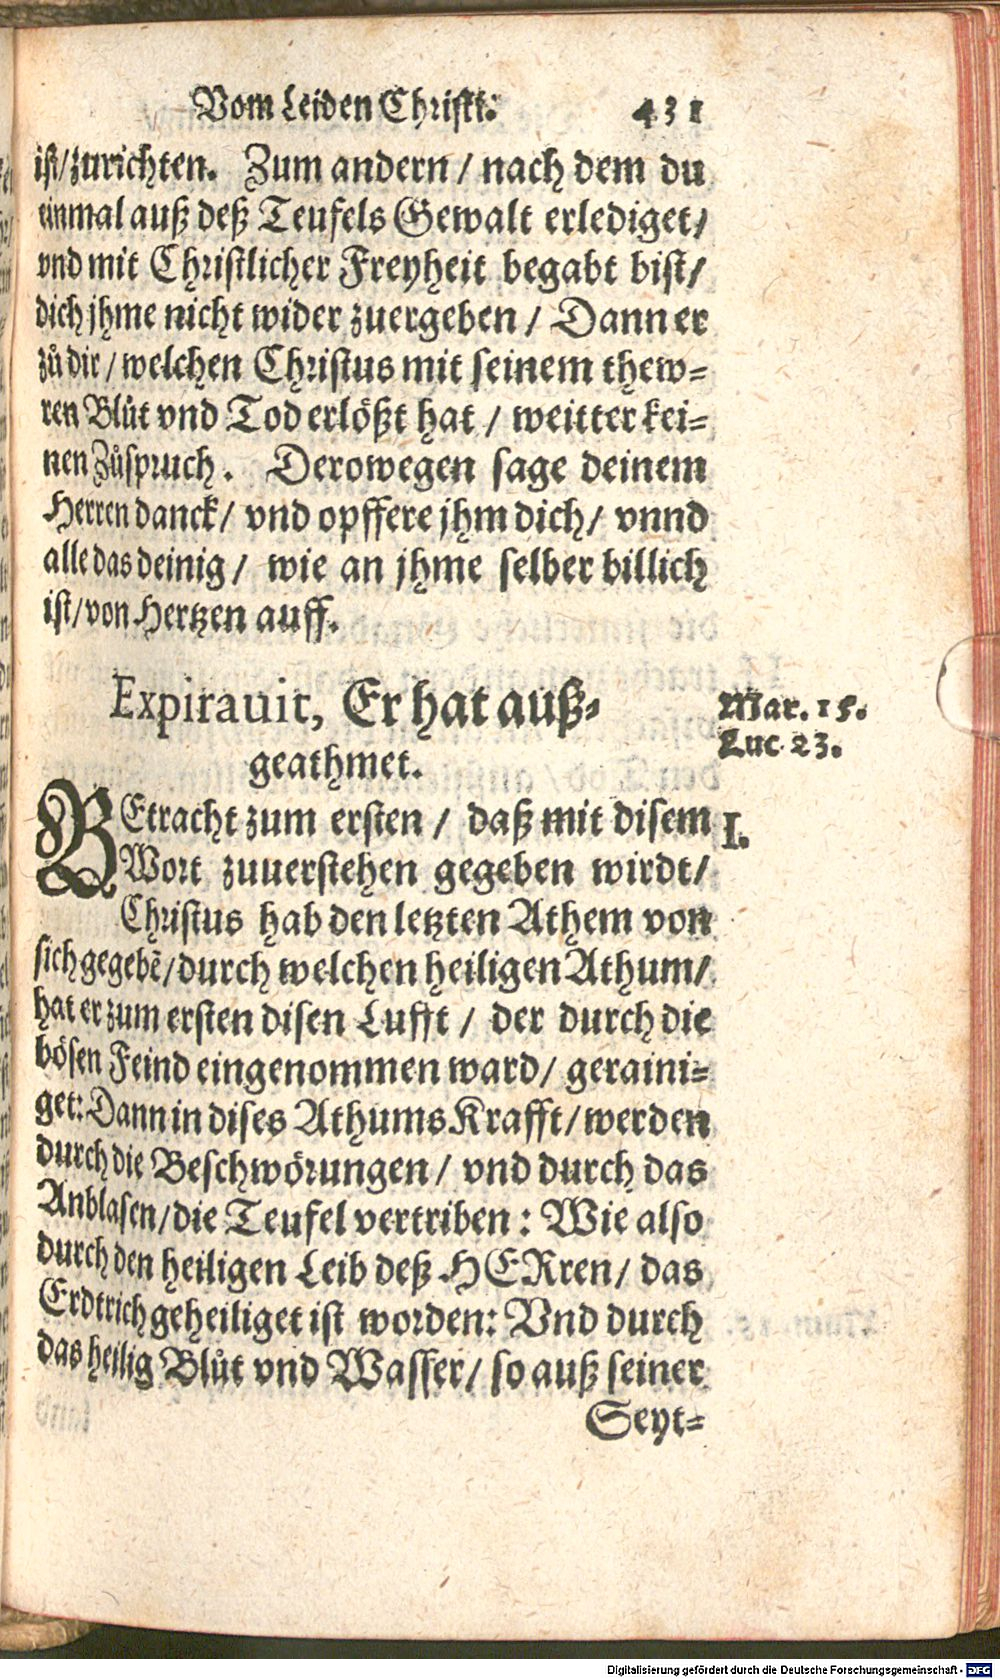 Vom Leiden Christi. 431
ist/zurichten. Zum andern / nach dem du
einmal auß deß Teufels Gewalt erlediget/
vnd mit Christlicher Freyheit begabt bist/
dich jhme nicht wider zuergeben / Dann er
zů dir / welchen Christus mit seinem thew-
ren Blůt vnd Tod erlößt hat / weitter kei-
nen Zůspruch. Derowegen sage deinem
Herren danck/ vnd opffere jhm dich/ vnnd
alle das deinig / wie an jhme selber billich
ist/von Hertzen auff.
Expirauit, Er hat auß-
geathmet.
Mar. 15.
Luc. 23.
BEtracht zum ersten / daß mit disem
I.
Wort zuuerstehen gegeben wirdt/
Christus hab den letzten Athem von
sich gegebẽ/durch welchen heiligen Athum/
hat er zum ersten disen Lufft / der durch die
bösen Feind eingenommen ward/ geraini-
get: Dann in dises Athums Krafft/werden
durch die Beschwörungen/ vnd durch das
Anblasen/die Teufel vertriben : Wie also
durch den heiligen Leib deß HERren/ das
Erdtrich geheiliget ist worden: Vnd durch
das heilig Blůt vnd Wasser/ so auß seiner
Seyt-
Digitalisierung gefördert durch die Deutsche Forschungsgemeinschaft - DFG